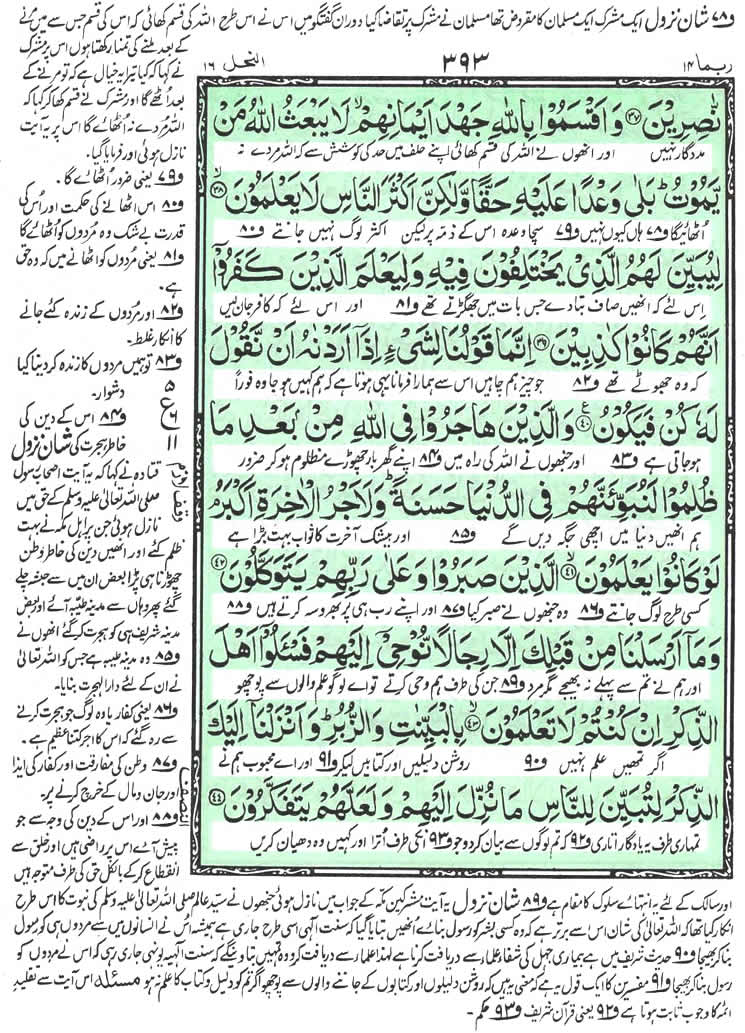 و۷۸ شان نزول ایک مشرک ایک مسلمان کا مقروض تھا مسلمان نے مشرک پر تقاضا کیا دوران گفتگو میں اس نے اس طرح اللہ کی قسم کھائی کہ اس کی قسم جس سے میں مرنے
کے بعد ملنے کی تمنا رکھتا ہوں اس پر مشرک
نے کہا کہ کیا تیرا یہ خیال ہے کہ تو مرنے کے
بعد اٹھے گا اور مشرک نے قسم کھا کر کہا کہ
اللہ مردے نہ اُٹھائے گا اس پر یہ آیت
نازل ہوئی اور فرمایا گیا۔
و۷۹ یعنی ضرور اُٹھائے گا۔
و۸۰ اس اٹھانے کی حکمت اور اُس کی
قدرت بے شک وہ مُردوں کو اُٹھائے گا
و۸۱ یعنی مُردوں کو اٹھانے میں کہ وہ حق
ہے۔
و۸۲ اور مُردوں کے زندہ کئے جانے
کا انکار غلط۔
و۸۳ تو ہمیں مردوں کا زندہ کر دینا کیا
دشوار۔
و۸۴ اس کے دین کی
خاطر ہجرت کی شان نزول
قتادہ نے کہا کہ یہ آیت اصحاب رسول
صلی اللہ تعالیٰ علیہ وسلم کے حق میں
نازل ہوئی جن پر اہل مکہ نے بہت
ظلم کئے اور انھیں دین کی خاطر وطن
چھوڑنا ہی پڑا بعض ان میں سے حبشہ چلے
گئے پھر وہاں سے مدینہ طیبہ آئے اور بعض
مدینہ شریف ہی کو ہجرت کر گئے انھوں نے
و۸۵ وہ مدینہ طیبہ ہے جس کو اللہ تعالیٰ
نے ان کے لئے دار الہجرت بنایا۔
و۸۶ یعنی کفار یا وہ لوگ جو ہجرت کرنے
سے رہ گئے کہ اس کا اجر کتنا عظیم ہے۔
و۸۷ وطن کی مفارقت اور کفار کی ایذا
اور جان و مال کے خرچ کرنے پر۔
و۸۸ اور اس کے دین کی وجہ سے جو
پیش آئے اس پر راضی ہیں اور خلق سے
انقطاع کر کے بالکل حق کی طرف متوجہ ہیں
ع
۵
۶
۱۱
النصف
ربما ۱۴
۳۹۳
النحل ۱۶
نّٰصِرِیْنَ ﴿۳۷﴾ وَ اَقْسَمُوْا بِاللّٰهِ جَهْدَ اَیْمَانِهِمْ ۙ لَا یَبْعَثُ اللّٰهُ مَنْ
مددگار نہیں اور انھوں نے اللہ کی قسم کھائی اپنے حلف میں حد کی کوشش سے کہ اللہ مردے نہ
یَّمُوْتُ ؕ بَلٰی وَعْدًا عَلَیْهِ حَقًّا وَّلٰكِنَّ اَكْثَرَ النَّاسِ لَا یَعْلَمُوْنَ ﴿۳۸﴾ ۙ
اُٹھائیگا و۷۸ ہاں کیوں نہیں و۷۹ سچا وعدہ اس کے ذمہ پر لیکن اکثر لوگ نہیں جانتے و۸۰
لِیُبَیِّنَ لَهُمُ الَّذِیْ یَخْتَلِفُوْنَ فِیْهِ وَلِیَعْلَمَ الَّذِیْنَ كَفَرُوْۤا
اس لئے کہ انھیں صاف بتا دے جس بات میں جھگڑتے تھے و۸۱ اور اس لئے کہ کافر جان لیں
اَنَّهُمْ كَانُوْا كٰذِبِیْنَ ﴿۳۹﴾ اِنَّمَا قَوْلُنَا لِشَیْءٍ اِذَاۤ اَرَدْنٰهُ اَنْ نَّقُوْلَ
کہ وہ جھوٹے تھے و۸۲ جو چیز ہم چاہیں اس سے ہمارا فرمانا یہی ہوتا ہے کہ ہم کہیں ہو جا وہ فوراً
لَهٗ كُنْ فَیَكُوْنُ ﴿۴۰﴾ ع وَالَّذِیْنَ هَاجَرُوْا فِی اللّٰهِ مِنْۢ بَعْدِ مَا
ہو جاتی ہے و۸۳ اور جنھوں نے اللہ کی راہ میں و۸۴ اپنے گھر بار چھوڑے مظلوم ہو کر ضرور
ظُلِمُوْا لَنُبَوِّئَنَّهُمْ فِی الدُّنْیَا حَسَنَةً ؕ وَلَاَجْرُ الْاٰخِرَةِ اَكْبَرُ ۘ
ہم انھیں دنیا میں اچھی جگہ دیں گے و۸۵ اور بیشک آخرت کا ثواب بہت بڑا ہے
لَوْ كَانُوْا یَعْلَمُوْنَ ﴿۴۱﴾ ۙ الَّذِیْنَ صَبَرُوْا وَعَلٰی رَبِّهِمْ یَتَوَكَّلُوْنَ ﴿۴۲﴾
کسی طرح لوگ جانتے و۸۶ وہ جنھوں نے صبر کیا و۸۷ اور اپنے رب ہی پر بھروسہ کرتے ہیں و۸۸
وَمَاۤ اَرْسَلْنَا مِنْ قَبْلِكَ اِلَّا رِجَالًا نُّوْحِیْۤ اِلَیْهِمْ فَسْـَٔلُوْۤا اَهْلَ
اور ہم نے تم سے پہلے نہ بھیجے مگر مرد و۸۹ جن کی طرف ہم وحی کرتے تو اے لوگو علم والوں سے پوچھو
الذِّكْرِ اِنْ كُنْتُمْ لَا تَعْلَمُوْنَ ﴿۴۳﴾ ۙ بِالْبَیِّنٰتِ وَالزُّبُرِ ؕ وَاَنْزَلْنَاۤ اِلَیْكَ
اگر تمھیں علم نہیں و۹۰ روشن دلیلیں اور کتابیں لیکر و۹۱ اور اے محبوب ہم نے
الذِّكْرَ لِتُبَیِّنَ لِلنَّاسِ مَا نُزِّلَ اِلَیْهِمْ وَلَعَلَّهُمْ یَتَفَكَّرُوْنَ ﴿۴۴﴾
تمہاری طرف یہ یادگار اتاری و۹۲ کہ تم لوگوں سے بیان کر دو جو و۹۳ انکی طرف اُترا اور کہیں وہ دھیان کریں
اور سالک کے لئے یہ انتہائے سلوک کا مقام ہے و۸۹ شان نزول یہ آیت مشرکین مکہ کے جواب میں نازل ہوئی جنھوں نے سید عالم صلی اللہ تعالیٰ علیہ وسلم کی نبوت کا اس طرح
انکار کیا تھا کہ اللہ تعالیٰ کی شان اس سے برتر ہے کہ وہ کسی بشر کو رسول بنائے اُنھیں بتایا گیا کہ سنت الٰہی اسی طرح جاری ہے ہمیشہ اُس نے انسانوں میں سے مردوں ہی کو رسول
بنا کر بھیجا و۹۰ حدیث شریف میں ہے بیماری جہل کی شفا علماء سے دریافت کرنا ہے لہذا علماء سے دریافت کرو وہ تمہیں بتا دیں گے کہ سنت الٰہیہ یونہی جاری رہی کہ اس نے مردوں کو
رسول بنا کر بھیجا و۹۱ مفسرین کا ایک قول یہ ہے کہ معنی یہ ہیں کہ روشن دلیلوں اور کتابوں کے جاننے والوں سے پوچھو اگر تم کو دلیل و کتاب کا علم نہ ہو مسئلہ اس آیت سے تقلید
ائمہ کا وجوب ثابت ہوتا ہے و۹۲ یعنی قرآن شریف و۹۳ حکم۔